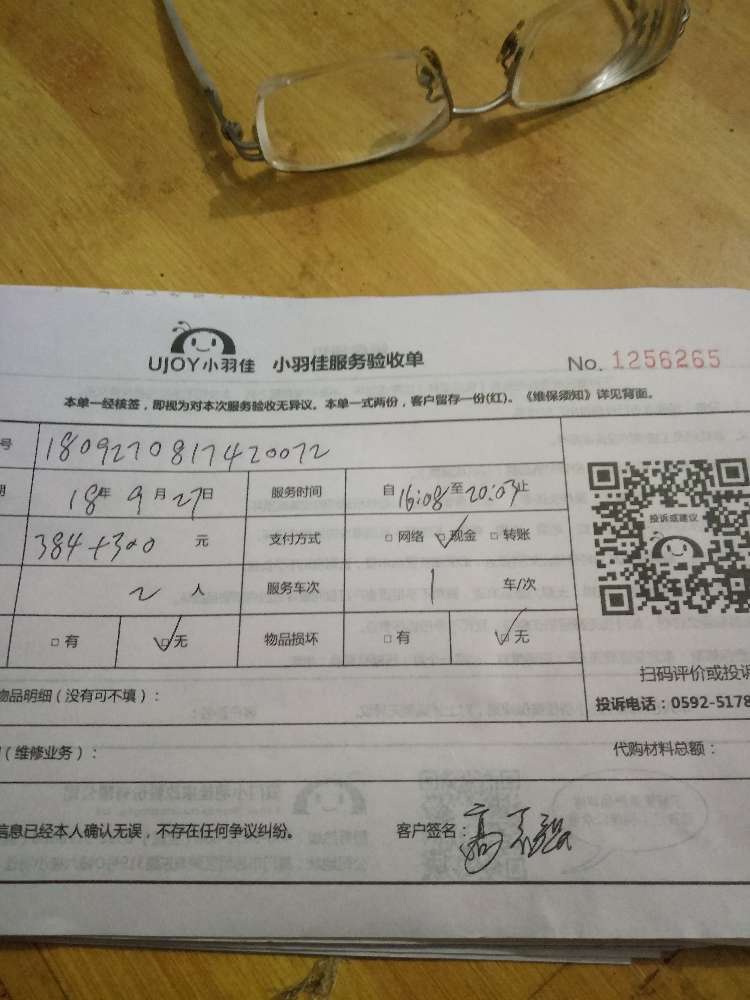 UJOY小羽佳 小羽佳服务验收单 No. 1256265
本单一经核签，即视为对本次服务验收无异议。本单一式两份，客户留存一份(红)。《维保须知》详见背面。
号 1809270817420072
期 18年 9月 27日 服务时间 自16:08至20:03止
384+300 元 支付方式 □网络 □现金 □转账
投诉或建议
2 人 服务车次 1 车/次
□有 □无 物品损坏 □有 □无
扫码评价或投诉
物品明细（没有可不填）：
投诉电话：0592-5178
（维修业务）： 代购材料总额：
信息已经本人确认无误，不存在任何争议纠纷。 客户签名：